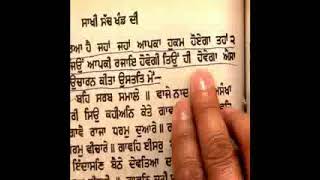 ਸਾਖੀ ਸੱਚ ਖੰਡ ਦੀ
ਆ ਹੈ ਜਹਾਂ ਜਹਾਂ ਆਪਕਾ ਹੁਕਮ ਹੋਏਗਾ ਤਹਾਂ ੨
ਜਿਉਂ ਆਪਕੀ ਰਜਾਇ ਹੋਵੇਗੀ ਤਿਉਂ ਹੀ ਹੋਵੇਗਾ ਐਸਾ
ਉਚਾਰਨ ਕੀਤਾ ਉਸਤਤਿ ਮੇਂ—
ਬਹਿ ਸਰਬ ਸਮਾਲੇ ॥ ਵਾਜੇ ਨਾਦ
ਰੀ ਸਿਉ ਕਹੀਅਨਿ ਕੇਤੇ ਗਾਵ
ਗਾਵੈ ਰਾਜਾ ਧਰਮੁ ਦੁਆਰੇ ॥
ਧਰਮੁ ਵੀਚਾਰੇ ॥ ਗਾਵਹਿ ਈਸਰੁ
ਇੰਦਾਸਣਿ ਬੈਠੇ ਦੇਵਤਿਆ ਦ